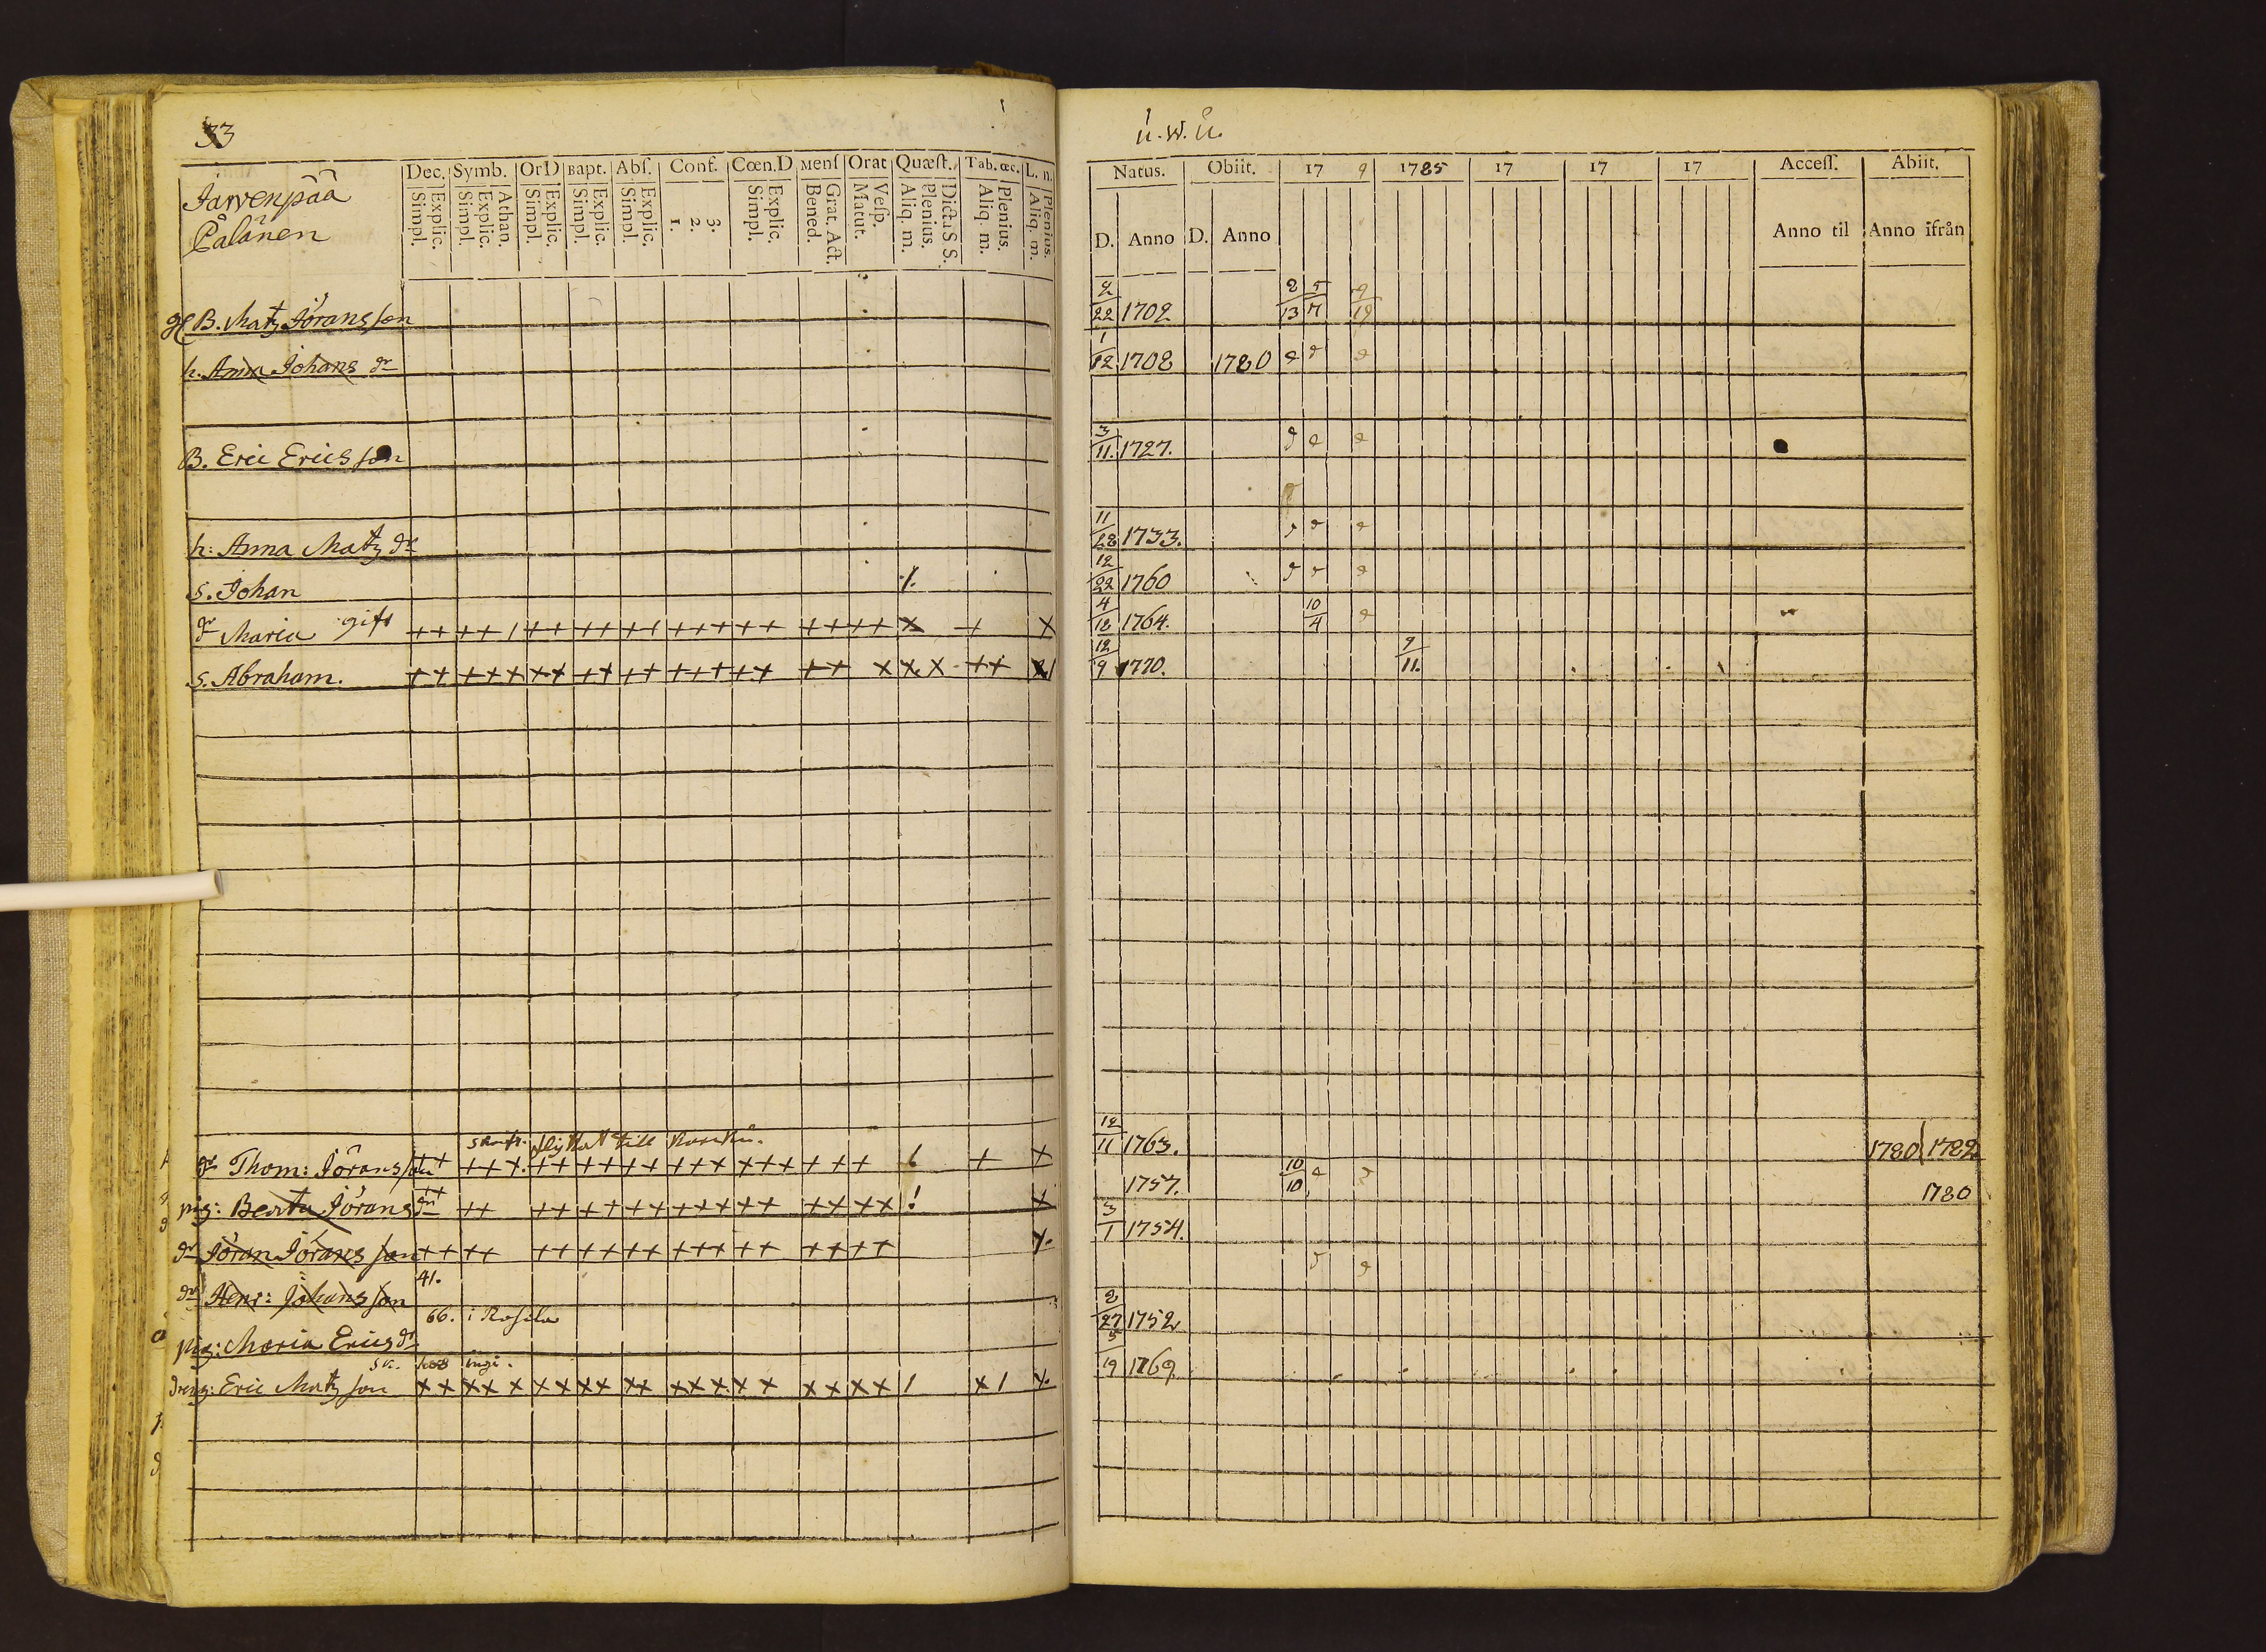 33
Dec. Symb. OrD Bapt. Abſ. Conf. Cœn.D Menſ Orat Quæſt. Tab. œc. L. n.
Simpl. Explic. Simpl. Explic. Athan. Simpl. Explic. Simpl. Explic. Simpl. Explic. 1. 2. 3. Simpl. Explic. Bened. Grat. Act. Matut. Veſp. Aliq. m. Plenius. Dicta S S. Aliq. m. Plenius. Aliq. m. Plenius.
Jarvenpää
Pålånen
gl B. Matz Jöransson
h. Anna Johans dr
B. Eric Ericsson
h: Anna Matz dr
s. Johan
dr Maria gift ++ ++ / ++ ++ ++ +++ ++ ++ ++ x + x
s. Abraham. ++ +++ ++ ++ ++ +++ ++ ++ x x x ++ x
flyttat till
dr Thom: Jöransson ++ +++ ++ ++ ++ +++ +++ +++ + x
pig: Berta Jörans dr ++ ++ ++ ++ ++ +++ ++ ++ ++ ! x
dr Jöran Jörans son ++ ++ ++ ++ ++ +++ ++ ++ ++
41.
dr Henr: Johans son
66. i Rosila
pig: Maria Erics dr
dreng: Eric Matz son ++ ++ + ++ ++ ++ +++ ++ ++ ++ / + /
u. w. u.
Natus. Obiit. 17 9 1785 17 17 17 Acceſſ. Abiit.
D. Anno D. Anno Anno til Anno ifrån
2/22 1702 2/13 5/7 9/19
1/12 1708 1780
3/11. 1727.
11/28 1733.
12/22 1760
4/18 1764. 10/4
12/9 1770. 9/11.
12/11 1763. 1780 1782
1757. 10/10 1780
3/1 1754.
2/27 1752
5/19 1769